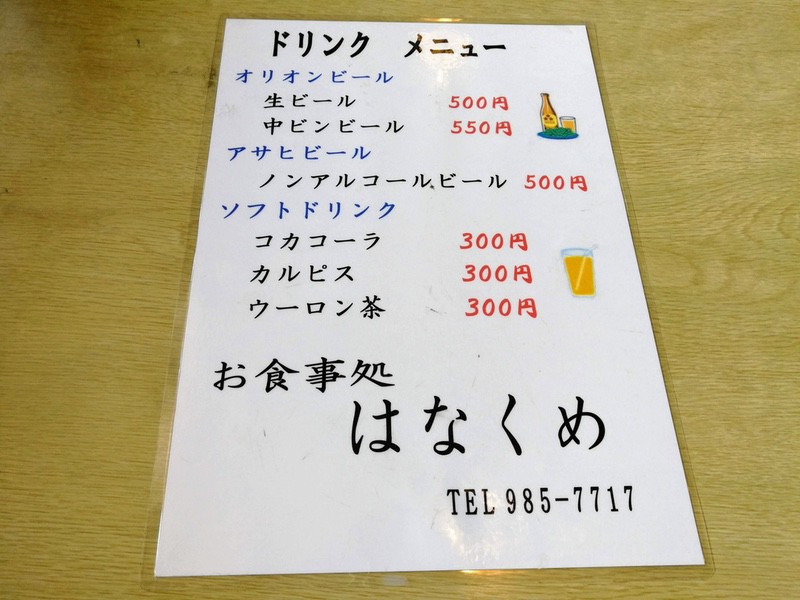 ドリンク メニュー
オリオンビール
生ビール 500円
中ビンビール 550円
アサヒビール
ノンアルコールビール 500円
ソフトドリンク
コカコーラ 300円
カルピス 300円
ウーロン茶 300円
お食事処
はなくめ
TEL 985-7717